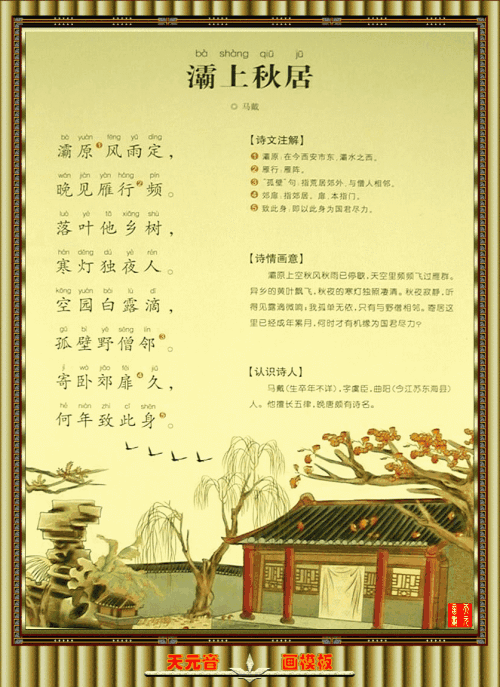 bà shàng qiū jū
灞上秋居
◎ 马戴
bà yuán fēng yǔ dìng
灞原①风雨定，
wǎn jiàn yàn háng pín
晚见雁行②频。
luò yè tā xiāng shù
落叶他乡树，
hán dēng dú yè rén
寒灯独夜人。
kōng yuán bái lù dī
空园白露滴，
gū bì yě sēng lín
孤壁野僧邻③。
jì wò jiāo fēi jiǔ
寄卧郊扉④久，
hé nián zhì cǐ shēn
何年致此身⑤。
【诗文注解】
①灞原：在今西安市东，灞水之西。
②雁行：雁阵。
③“孤壁”句：指荒居郊外，与僧人相邻。
④郊扉：指郊居。扉，本指门。
⑤致此身：即以此身为国君尽力。
【诗情画意】
灞原上空秋风秋雨已停歇，天空里频频飞过雁群。
异乡的黄叶飘飞，秋夜的寒灯独照凄清。秋夜寂静，听
得见露滴微响；我孤单无依，只有与野僧相邻。寄居这
里已经成年累月，何时才有机缘为国君尽力？
【认识诗人】
马戴（生卒年不详），字虞臣，曲阳（今江苏东海县）
人。他擅长五律，晚唐颇有诗名。
天元音 画模板